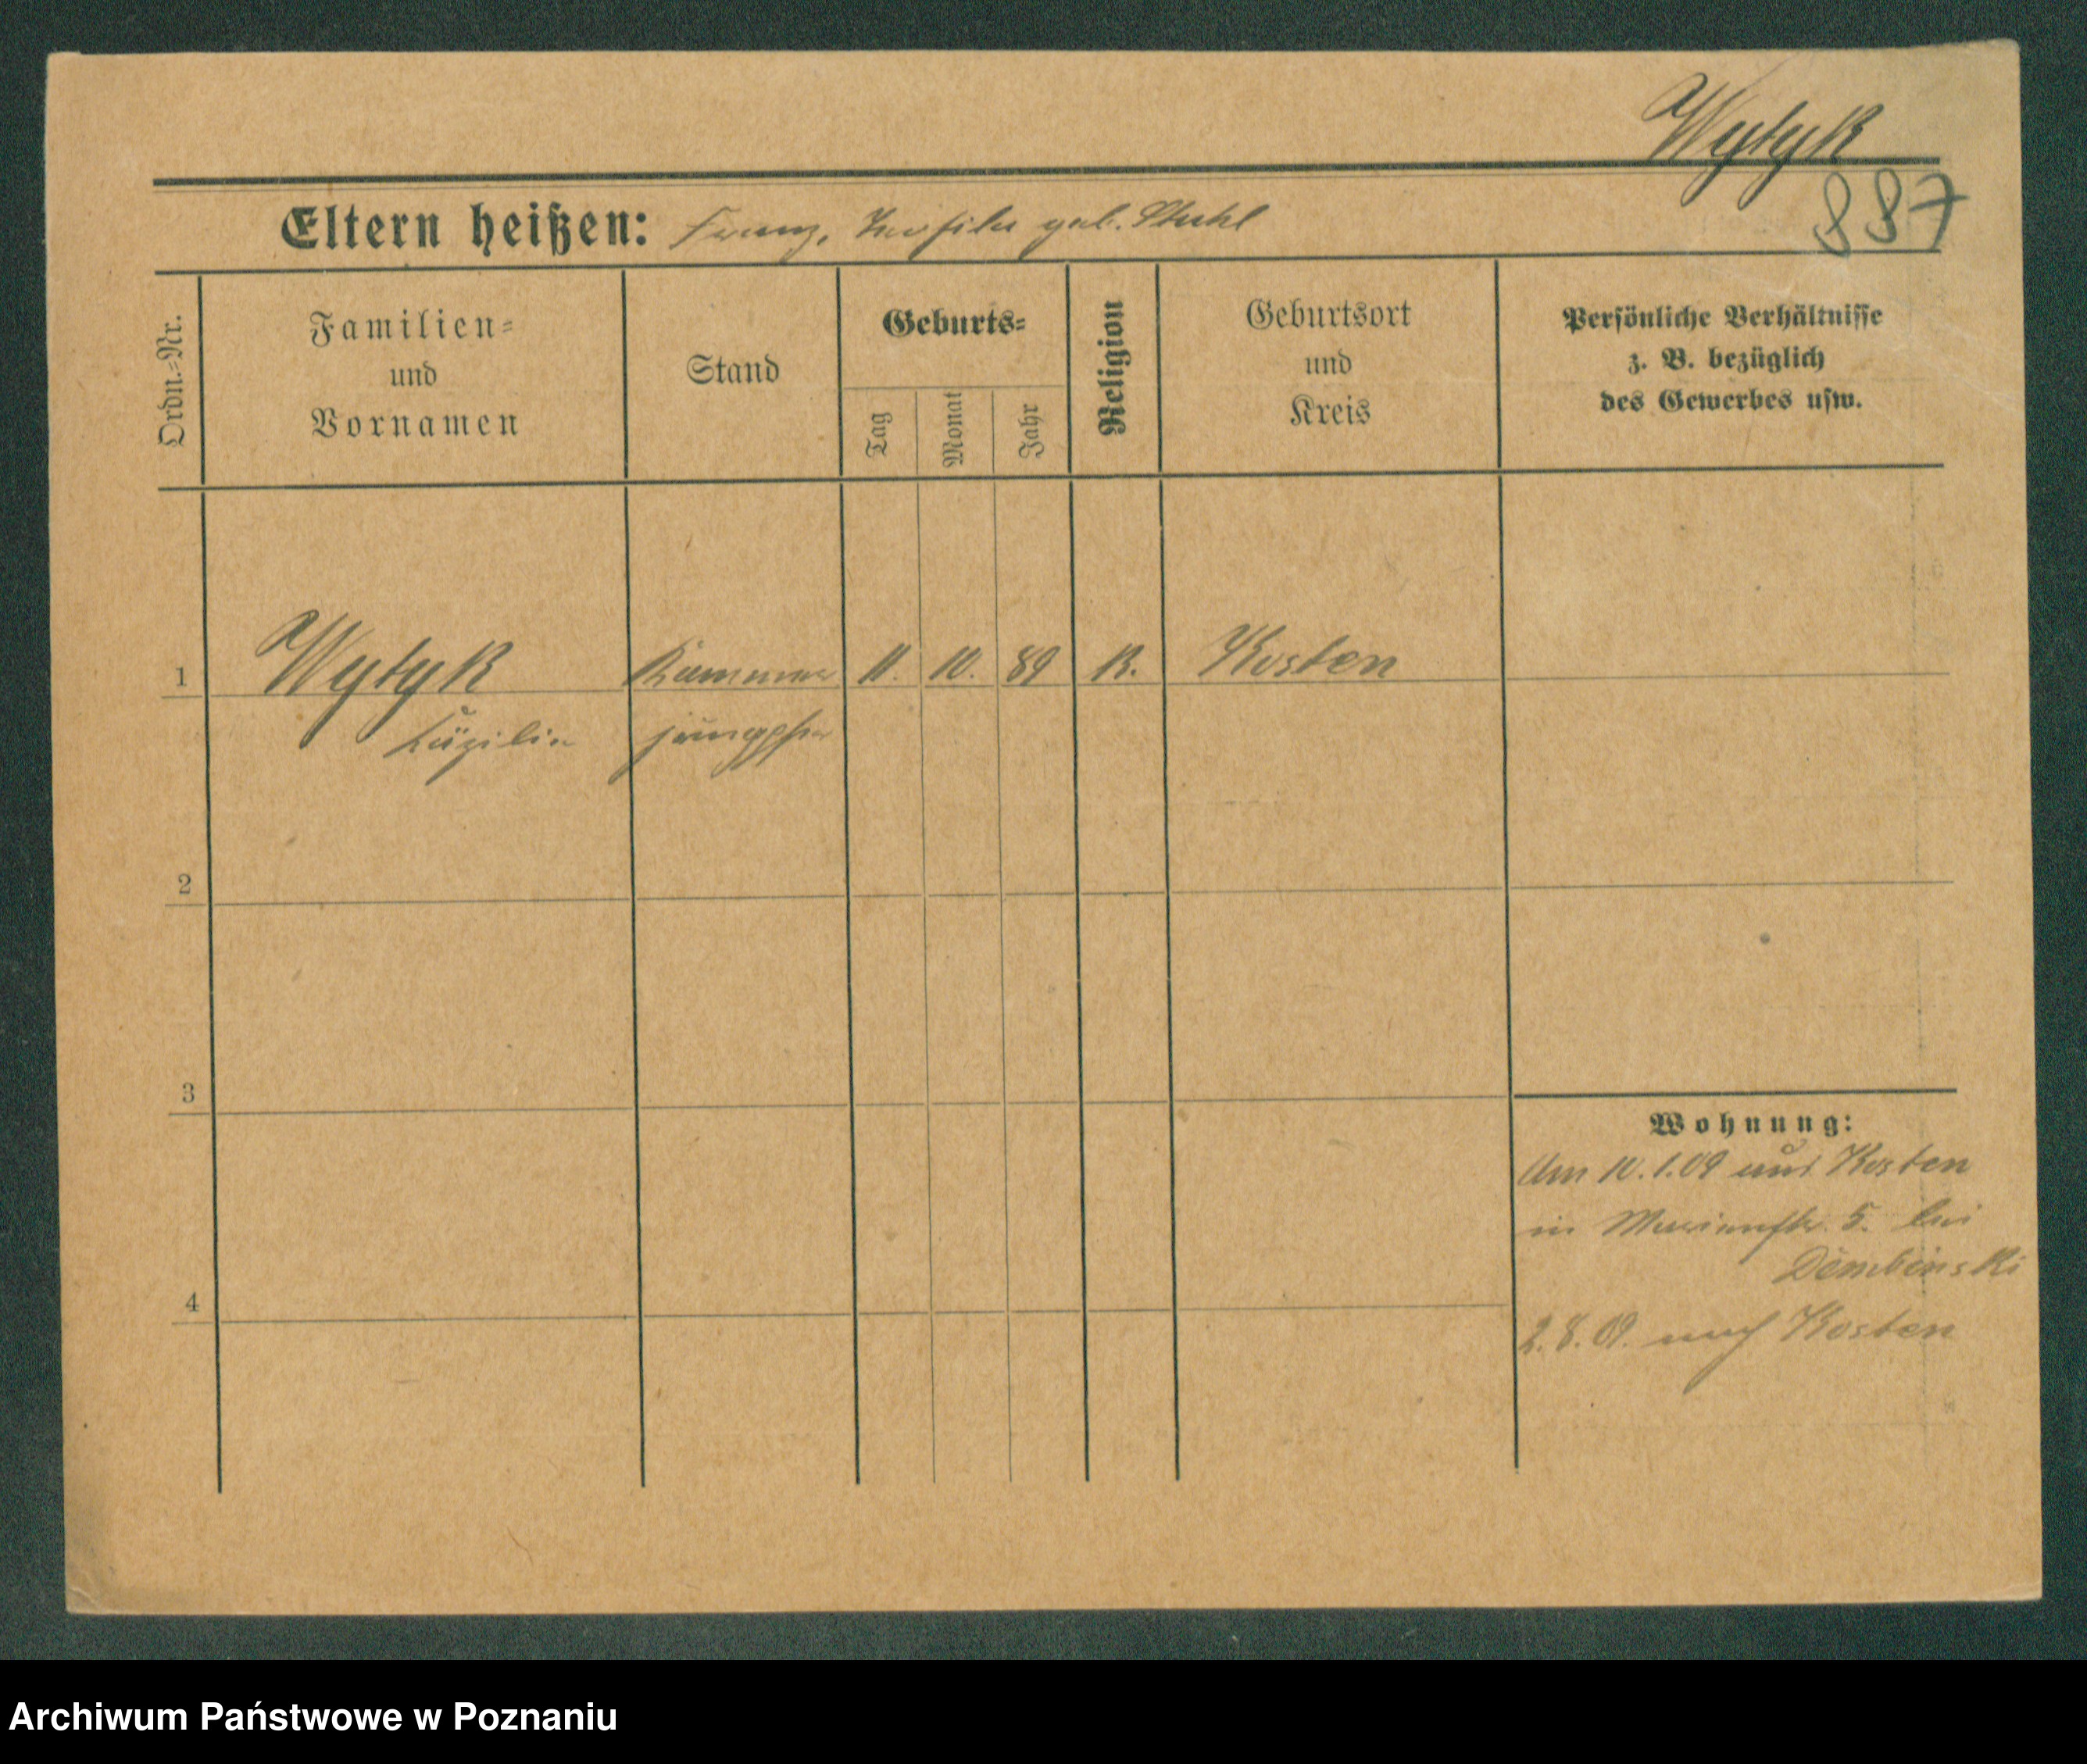 Wytyk
887
Eltern heißen: Franz, Teofila geb. Stuhl
Ordn.-Nr.
Familien-
und
Vornamen
Stand
Geburts-
Tag
Monat
Jahr
Religion
Geburtsort
und
Kreis
Persönliche Verhältnisse
z. B. bezüglich
des Gewerbes usw.
1 Wytyk Kammer 11. 10. 89 K. Kosten
jungfer
2
3
4
Wohnung:
Am 10.1.09 aus Kosten
in 5. bei
Dembinski
2.8.09. nach Kosten
Archiwum Państwowe w Poznaniu